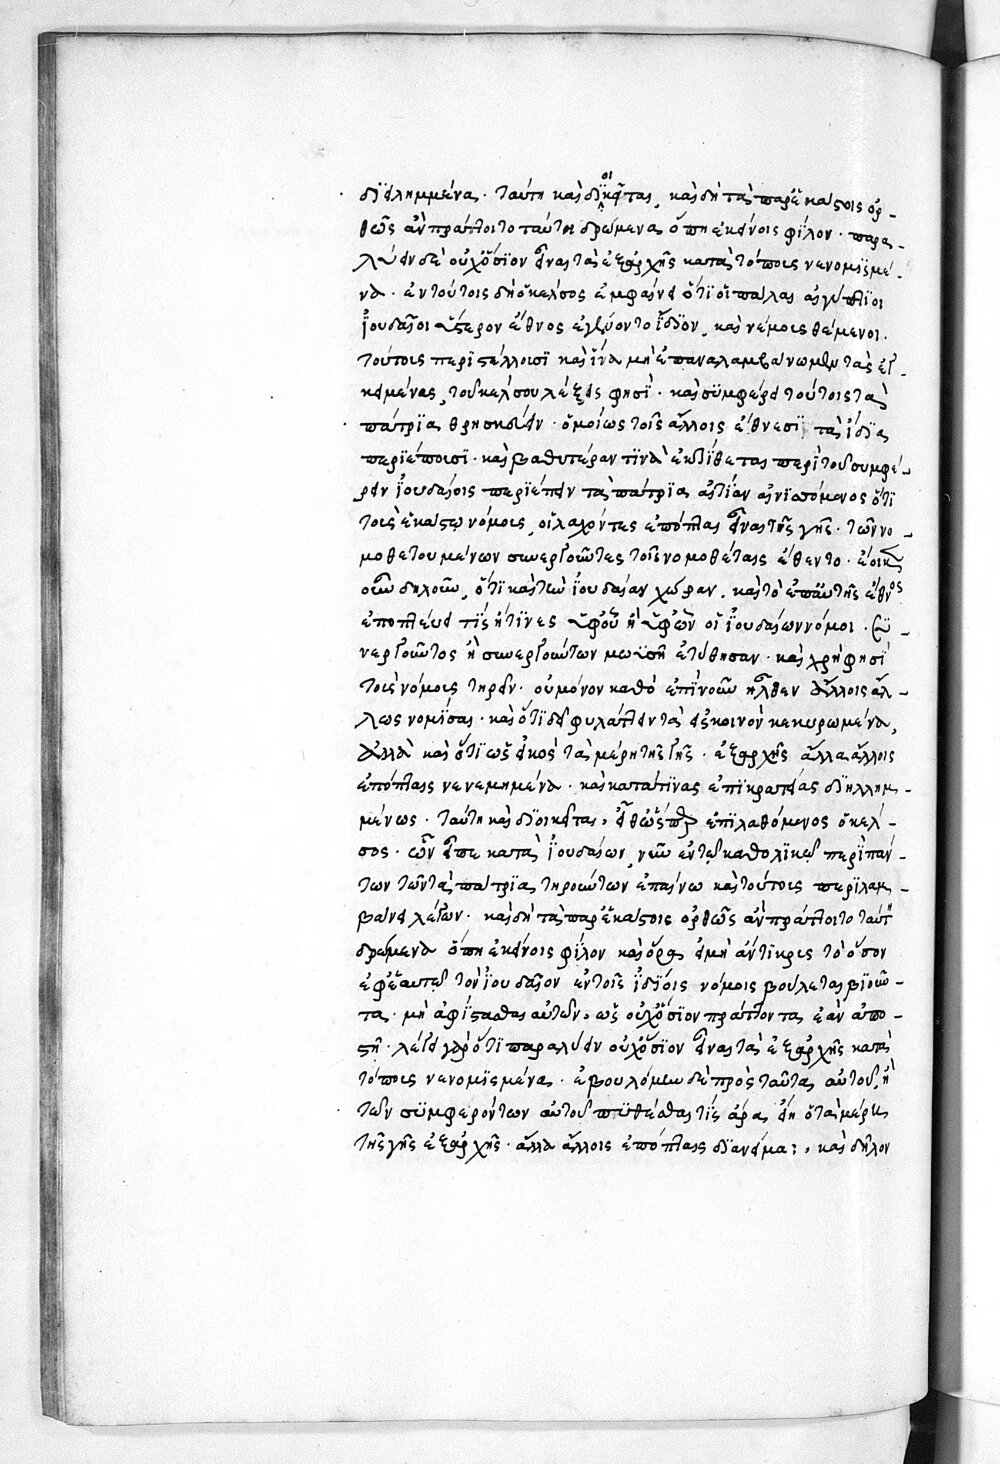 διειλημμένα. ταύτῃ καὶ διοικεῖται, καὶ δὴ τὰ παρ' ἑκάστοις ὀρ-
θῶς ἂν πράττοιτο ταύτῃ δρώμενα ὅπῃ ἐκείνοις φίλον. παρα-
λύειν δὲ οὐχ ὅσιον εἶναι τὰ ἐξ ἀρχῆς κατὰ τόπους νενομισμέ-
να. ἐν τούτοις δὴ ὁ κέλσος ἐμφαίνει ὅτι οἱ πάλαι αἰγύπτιοι
ἰουδαῖοι ὕστερον ἔθνος ἐγένοντο ἴδιον, καὶ νόμους θέμενοι.
τούτους περιστέλλουσι καὶ ἵνα μὴ ἐπαναλαμβάνωμεν τὰς ἐκ-
κειμένας τοῦ κέλσου λέξεις φησὶ. καὶ συμφέρει τούτοις τὰ
πάτρια θρησκεύειν. ὁμοίως τοῖς ἄλλοις ἔθνεσι τὰ ἴδια
περιέπουσι. καὶ βαθυτέραν τινὰ ἐκτίθεται περὶ τοῦ συμφέ-
ρειν ἰουδαίοις περιέπειν τὰ πάτρια αἰτίαν αἰνισσόμενος ὅτι
τοὺς ἑκάστῳ νόμους, οἱ λαχόντες ἐπόπται εἶναι τῆς γῆς. τῶν νο-
μοθετουμένων συνεργοῦντες τοῖς νομοθέταις ἔθεντο. ἔοικεν
οὖν δηλοῦν, ὅτι καὶ τὴν ἰουδαίαν χώραν, καὶ τὸ ἐπ' αὐτῆς ἔθνος
ἐποπτεύει τὶς ἤ τινες ὑφ' οὗ ἢ ὑφ' ὧν οἱ ἰουδαίων νόμοι. συ-
νεργοῦντος ἢ συνεργούντων μωϋσῇ ἐτέθησαν. καὶ χρὴ φησὶ
τοὺς νόμους τηρεῖν. οὐ μόνον καθὸ ἐπὶ νοῦν ἦλθεν ἄλλοις ἄλ-
λως νομίσαι. καὶ ὅτι δεῖ φυλάττειν τὰ εἰς κοινὸν κεκυρωμένα,
ἀλλὰ καὶ ὅτι ὡς εἰκὸς τὰ μέρη τῆς γῆς. ἐξ ἀρχῆς ἄλλα ἄλλοις
ἐπόπταις νενεμημένα. καὶ κατά τινας ἐπικρατείας διειλημ-
μένως. ταύτῃ καὶ διοικεῖται. εἶθ' ὥσπερ ἐπιλαθόμενος ὁ κέλ-
σος. ὧν εἶπε κατὰ ἰουδαίων, νῦν ἐν τῷ καθολικῷ περὶ πάν-
των τῶν τὰ πάτρια τηρούντων ἐπαίνῳ καὶ τούτους περιλαμ-
βάνει λέγων. καὶ δὴ τὰ παρ' ἑκάστοις ὀρθῶς ἂν πράττοιτο ταύτῃ
δρώμενα ὅπῃ ἐκείνοις φίλον καὶ ὅρα εἰ μὴ ἄντικρυς τὸ ὅσον
ἐφ' ἑαυτῷ τὸν ἰουδαῖον ἐν τοῖς ἰδίοις νόμοις βούλεται βιοῦν-
τα. μὴ ἀφίστασθαι αὐτῶν. ὡς οὐχ ὅσιον πράττοντα ἐὰν ἀπο-
στῇ. λέγει γὰρ ὅτι παραλύειν οὐχ ὅσιον εἶναι τὰ ἐξ ἀρχῆς κατὰ
τόπους νενομισμένα. ἐβουλόμην δὲ πρὸς ταῦτα αὐτοῦ, ἢ
τῶν συμφερόντων αὐτοῦ πυθέσθαι τίς ἄρα εἴη ὁ τὰ μέρη
τῆς γῆς ἐξ ἀρχῆς. ἄλλα ἄλλοις ἐπόπταις διανείμας, καὶ δῆλον